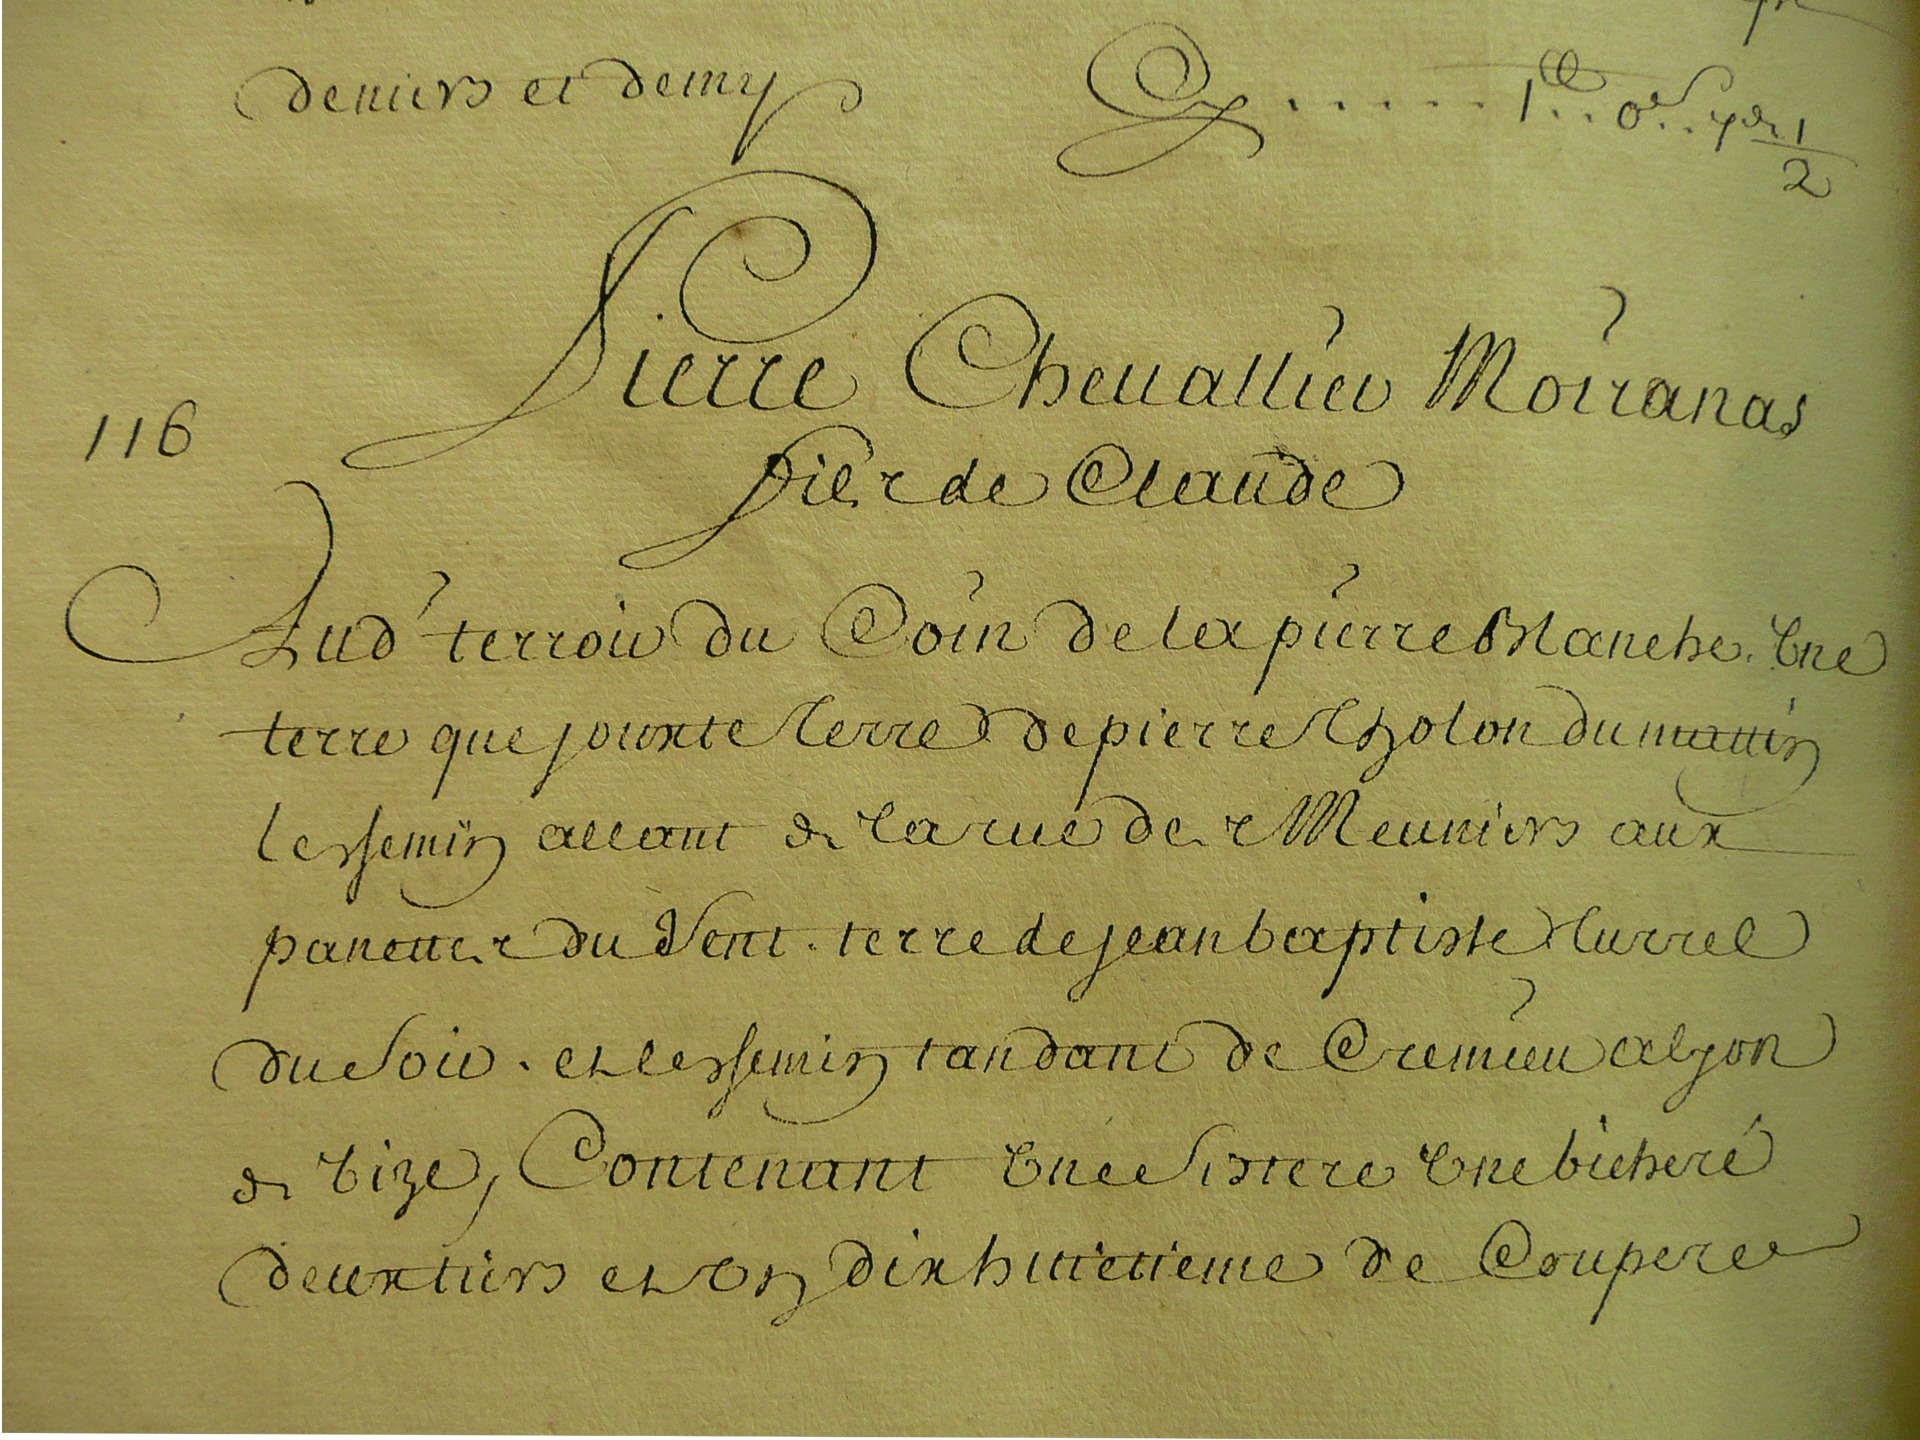 deniers et demy ..... 1ll.. 0s.. 7dr 1/2
Pierre Cheuallier Moiranas
116
fils de Claude
Aud' terroir du Coin de la pierre Blanche. Vne
terre que jouxte terre de pierre Cholon du mattin
le chemin allant de la rue des Meuniers aux
panettes du Vent. terre de jean baptiste Turrel
du Soir. et le chemin tandant de Cremieu a lyon
de bize, Contenant Vne Sistere Vne bicheré
deux tiers et Vn dixhuitieme de Couperee